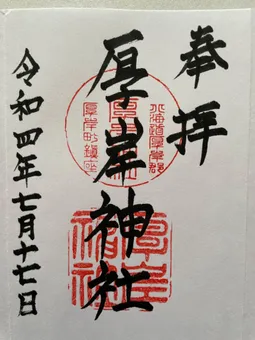 奉拝
厚岸神社
令和四年七月十七日
北海道厚岸郡
厚岸町鎮座